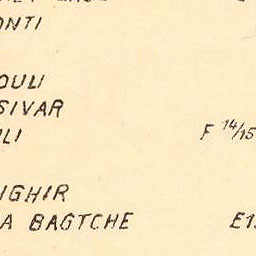 ONTI
OULI
SIVAR
ULI F 14/15
NGHIR
A BAGTCHE E1